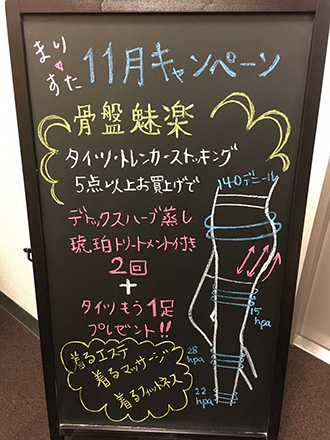 まり♥すた 11月キャンペーン
骨盤魅楽
タイツ・トレンカ・ストッキング
5点以上お買上げで
デトックスハーブ蒸し
琥珀トリートメント付き
2回
+
タイツもう1足
プレゼント!!
着るエステ
着るマッサージ
着るフィットネス
140デニール
15
hpa
28
hpa
22
hpa